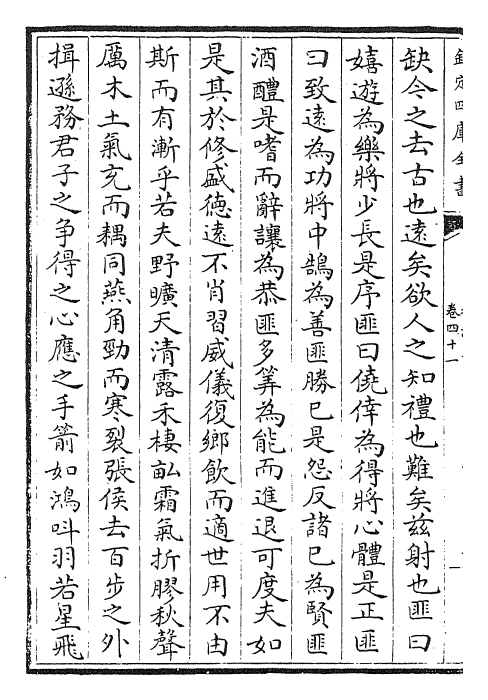 欽定四庫全書
卷四十一
一
缺今之去古也遠矣欲人之知禮也難矣兹射也匪曰
嬉遊為樂將少長是序匪曰僥倖為得將心體是正匪
曰致遠為功將中鵠為善匪勝已是怨反諸已為賢匪
酒醴是嗜而辭讓為恭匪多筭為能而進退可度夫如
是其於修盛徳遠不肖習威儀復鄉飲而適世用不由
斯而有漸乎若夫野曠天清露禾棲畆霜氣折膠秋聲
厲木土氣充而耦同燕角勁而寒裂張侯去百步之外
揖遜務君子之争得之心應之手箭如鴻呌羽若星飛